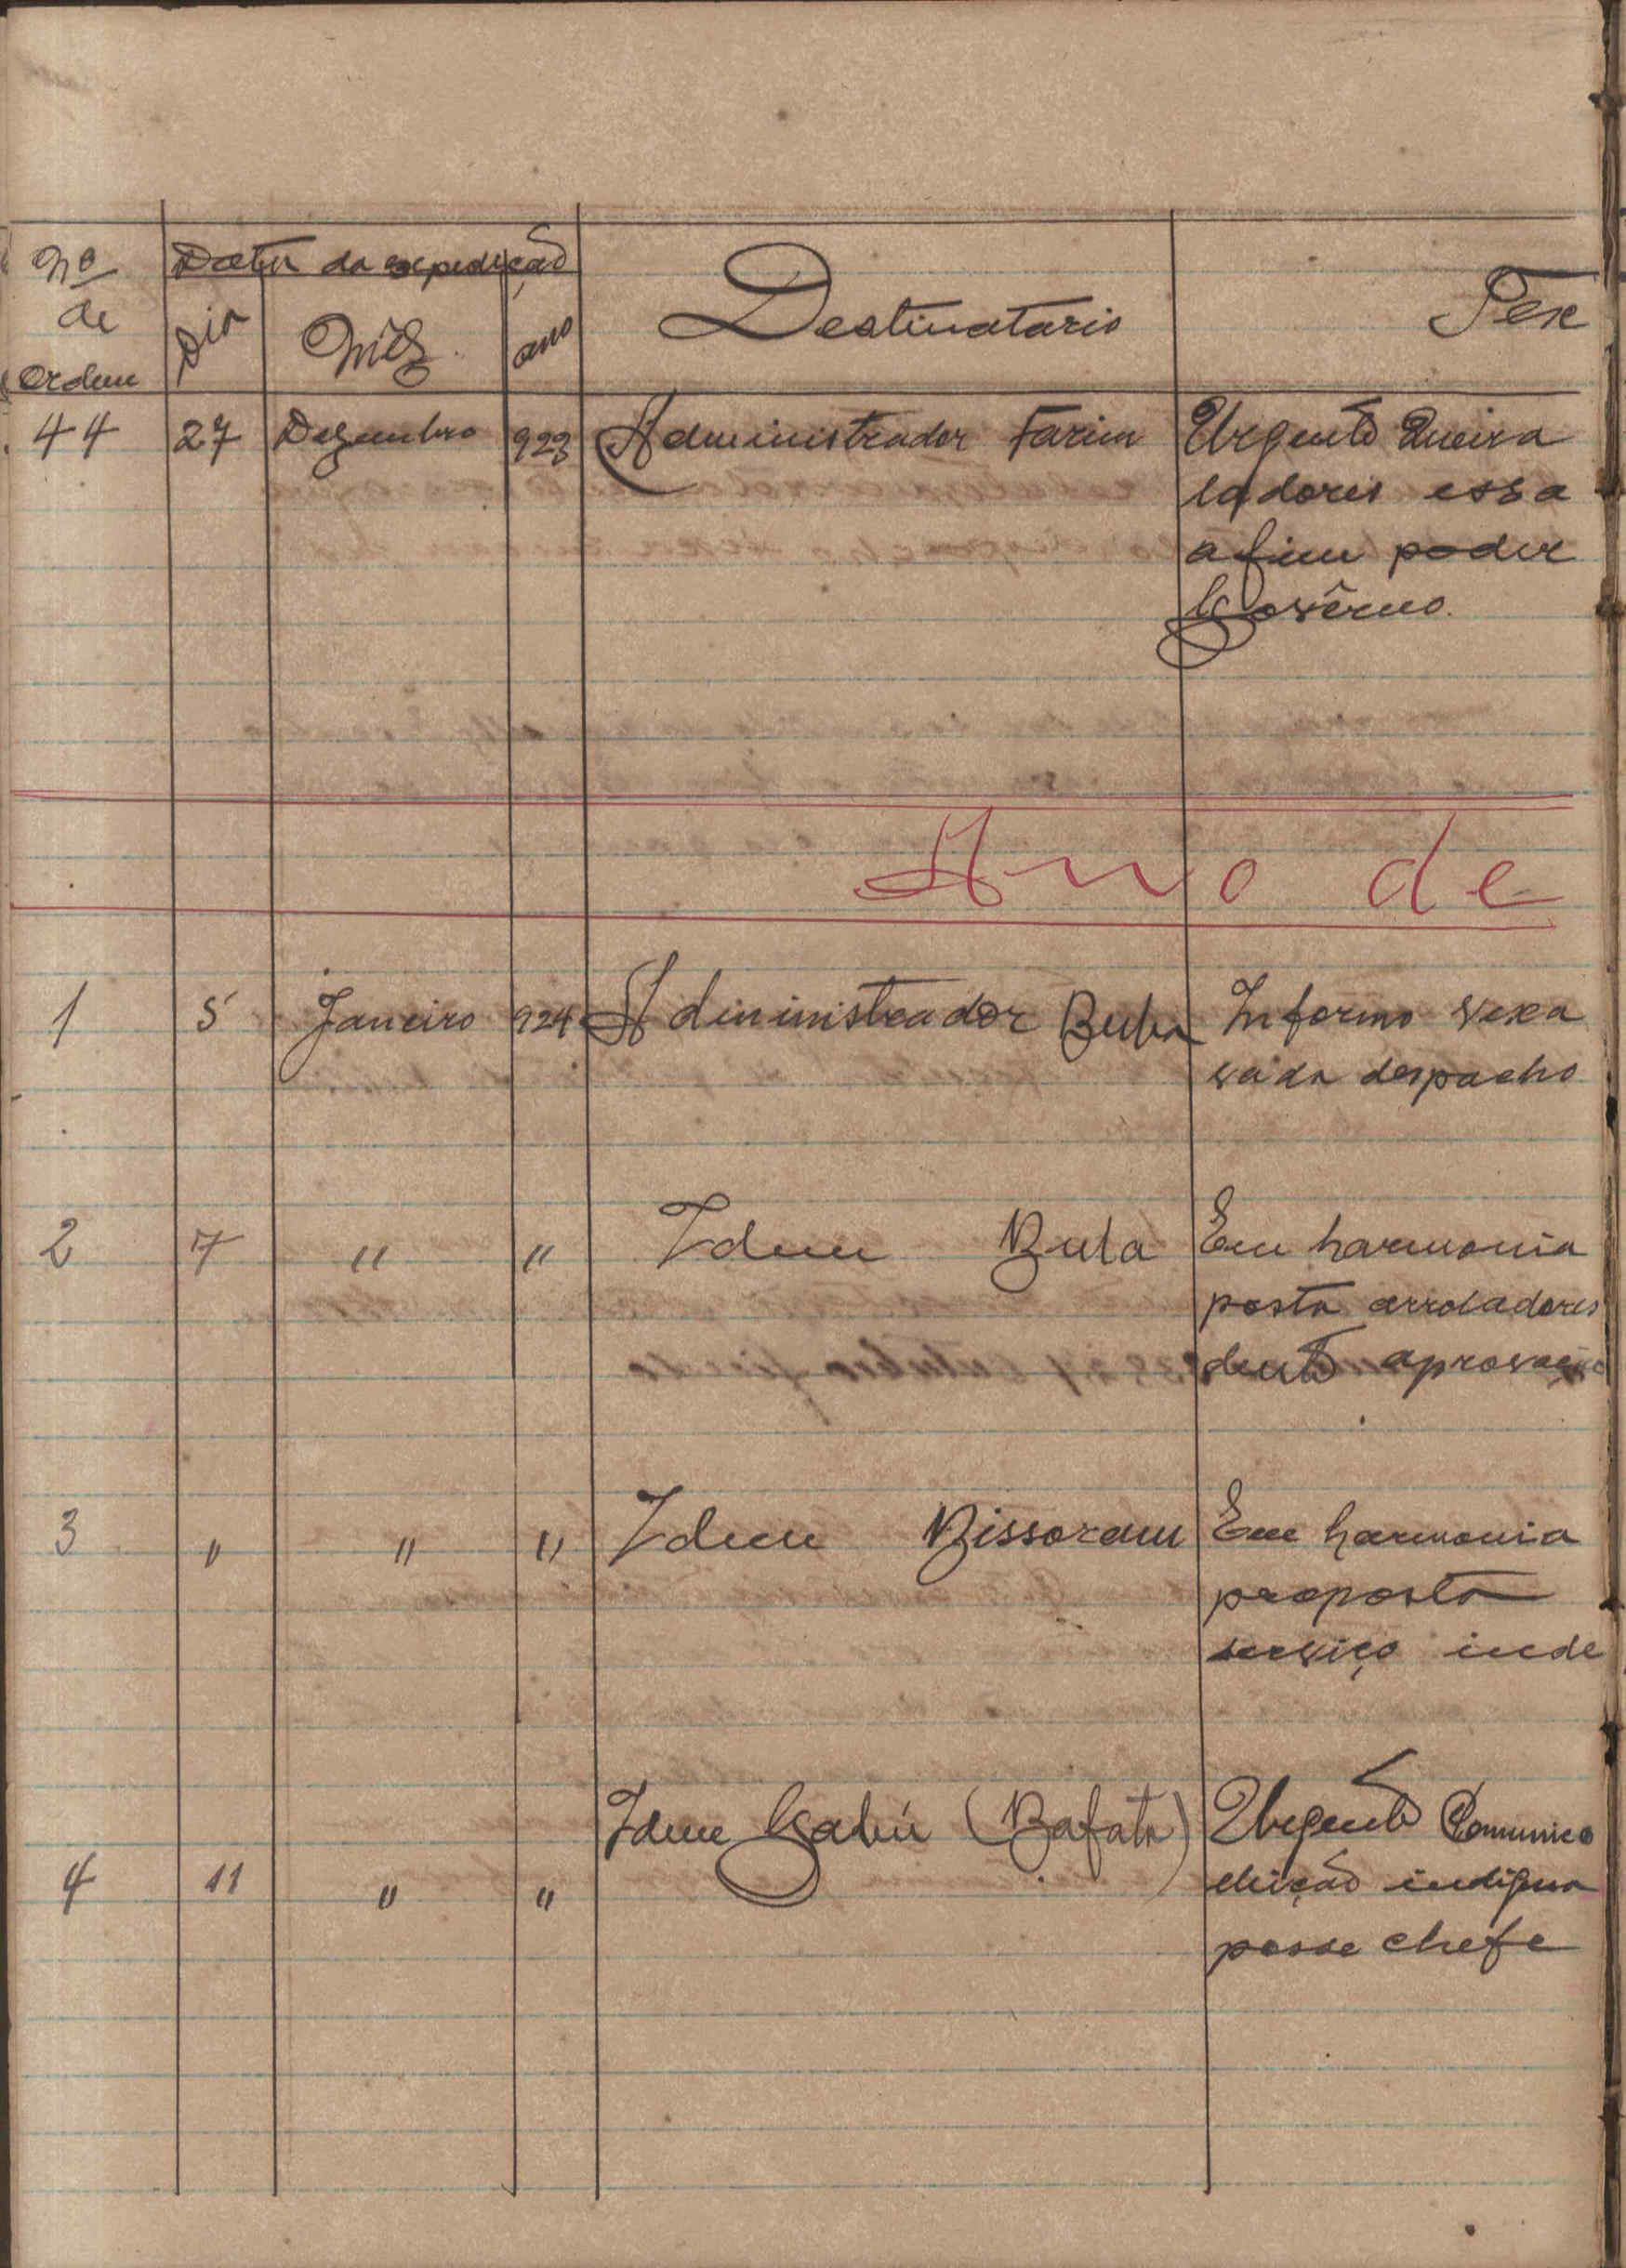 Nº de Ordem Data da expedição Dia Mês ano Destinatario Tex
44 27 Dezembro 923 Administrador Farim Urgente Queira
ladores essa
afim poder
Govêrno.
Ano de
1 5 Janeiro 924 Administrador Buba Informo Vexa
vada despacho
2 7 " " Idem Bula Em harmonia
posta arroladores
dente aprovação
3 " " " Idem Bissoram Em harmonia
proposta
serviço inde
Idem Gabú (Bafata) Urgente Comunico
4 11 " " eleição indigena
posse chefe